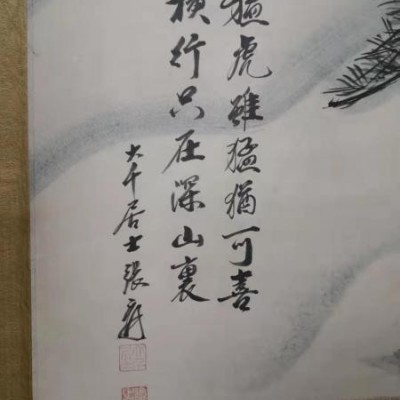 猛虎雖猛猶可喜
橫行只在深山裏
大千居士張爰